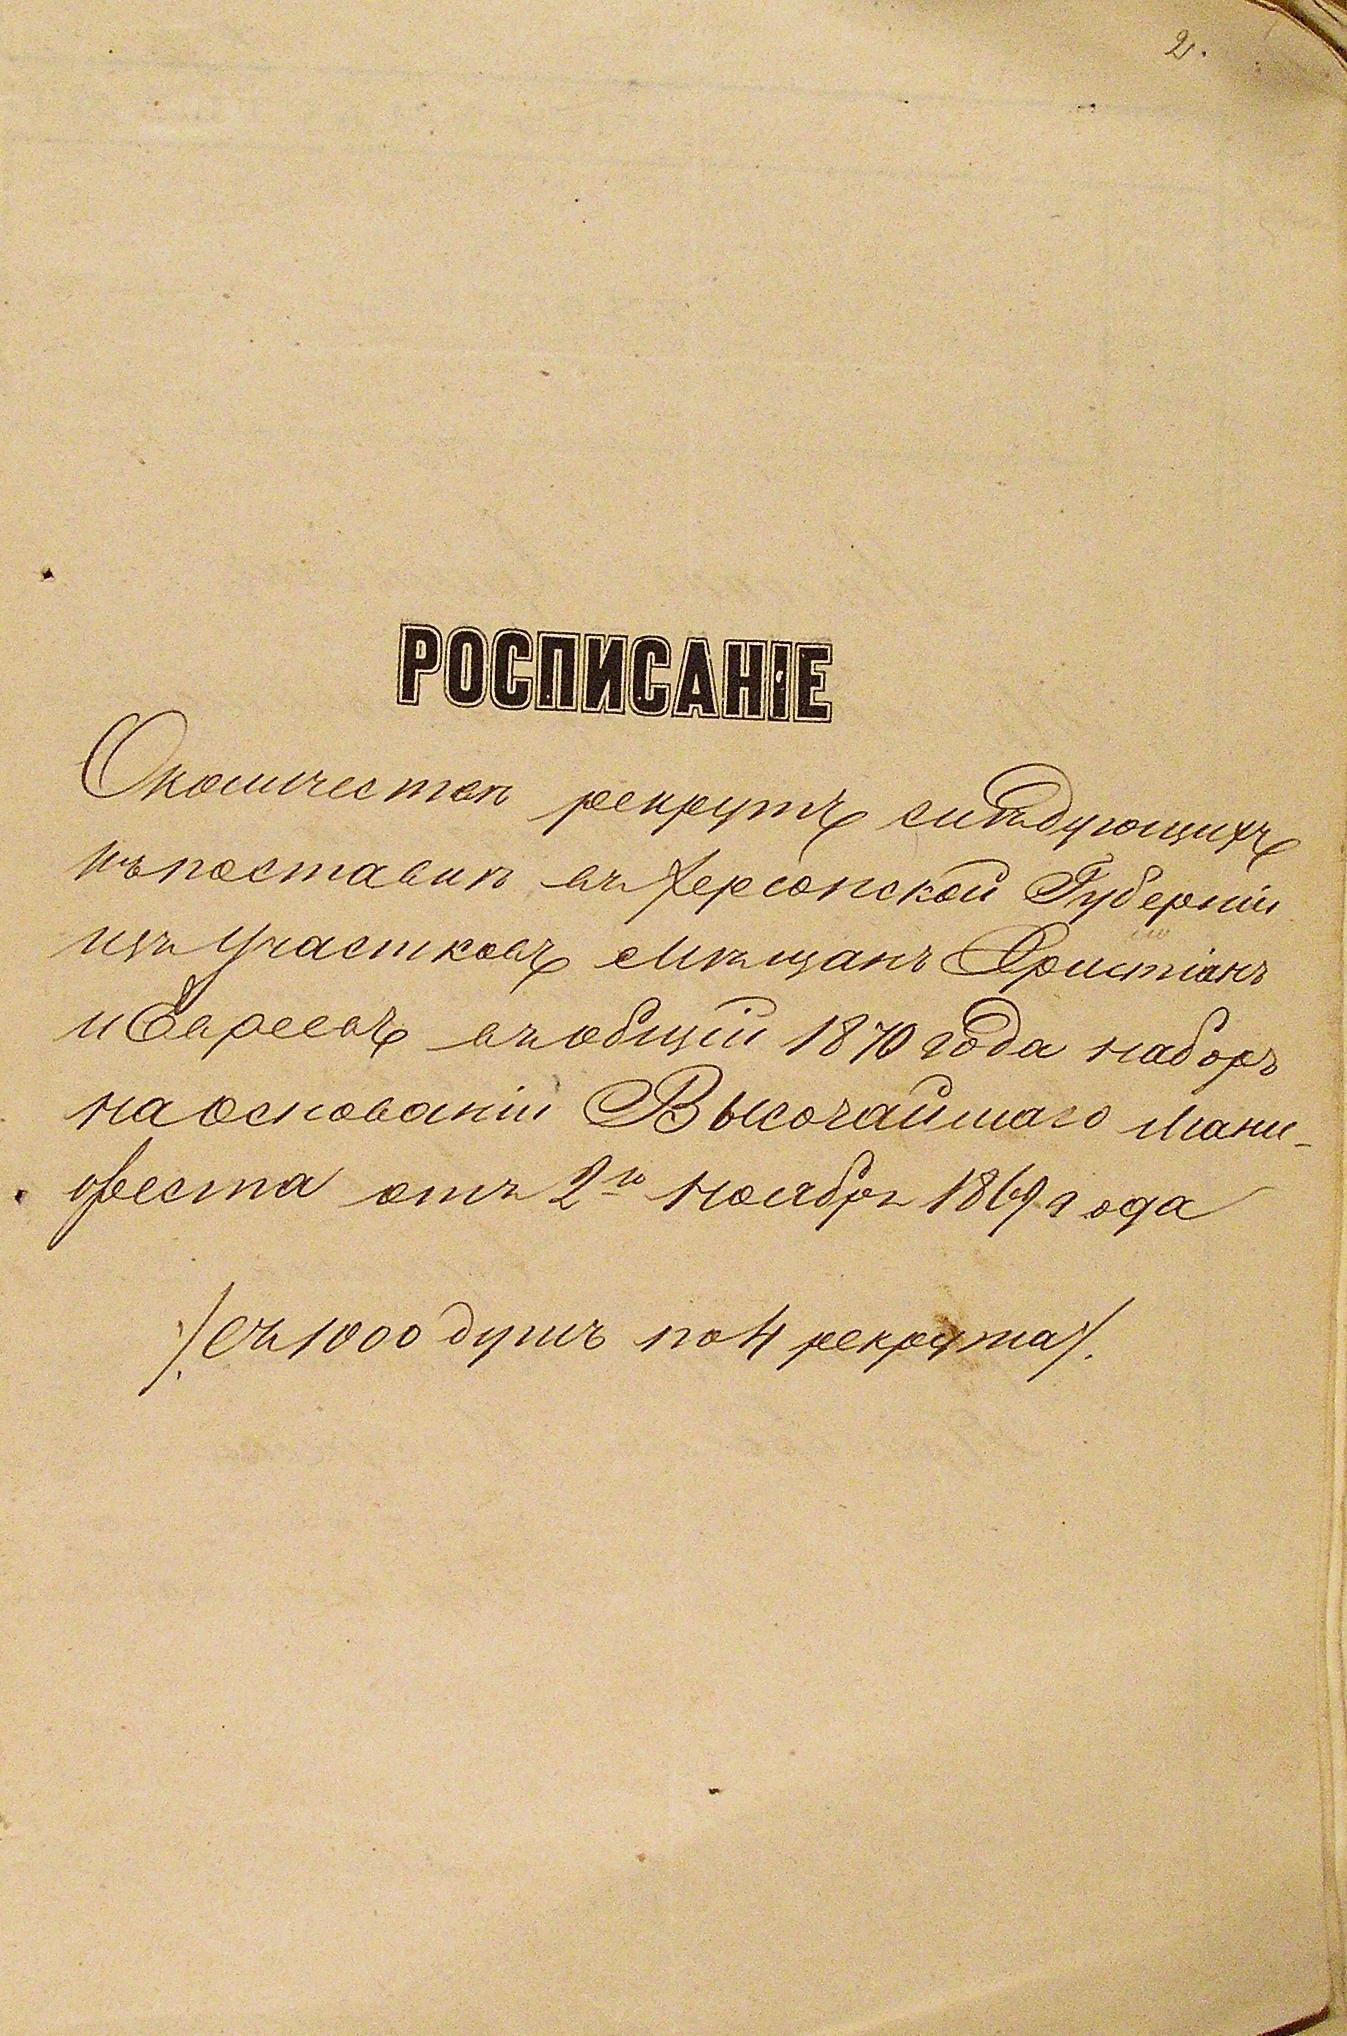 2.
РОСПИСАНІЕ
О количествѣ рекрутъ слѣдующихъ
къ поставкѣ въ Херсонской Губерніи
изъ Участковъ Мѣщанъ Христіанъ
и Евреевъ въ общій 1870 года наборъ
на основаніи Высочайшаго Мани-
феста отъ 2го ноября 1869 года
/: съ 1000 душъ по 4 рекрута /.